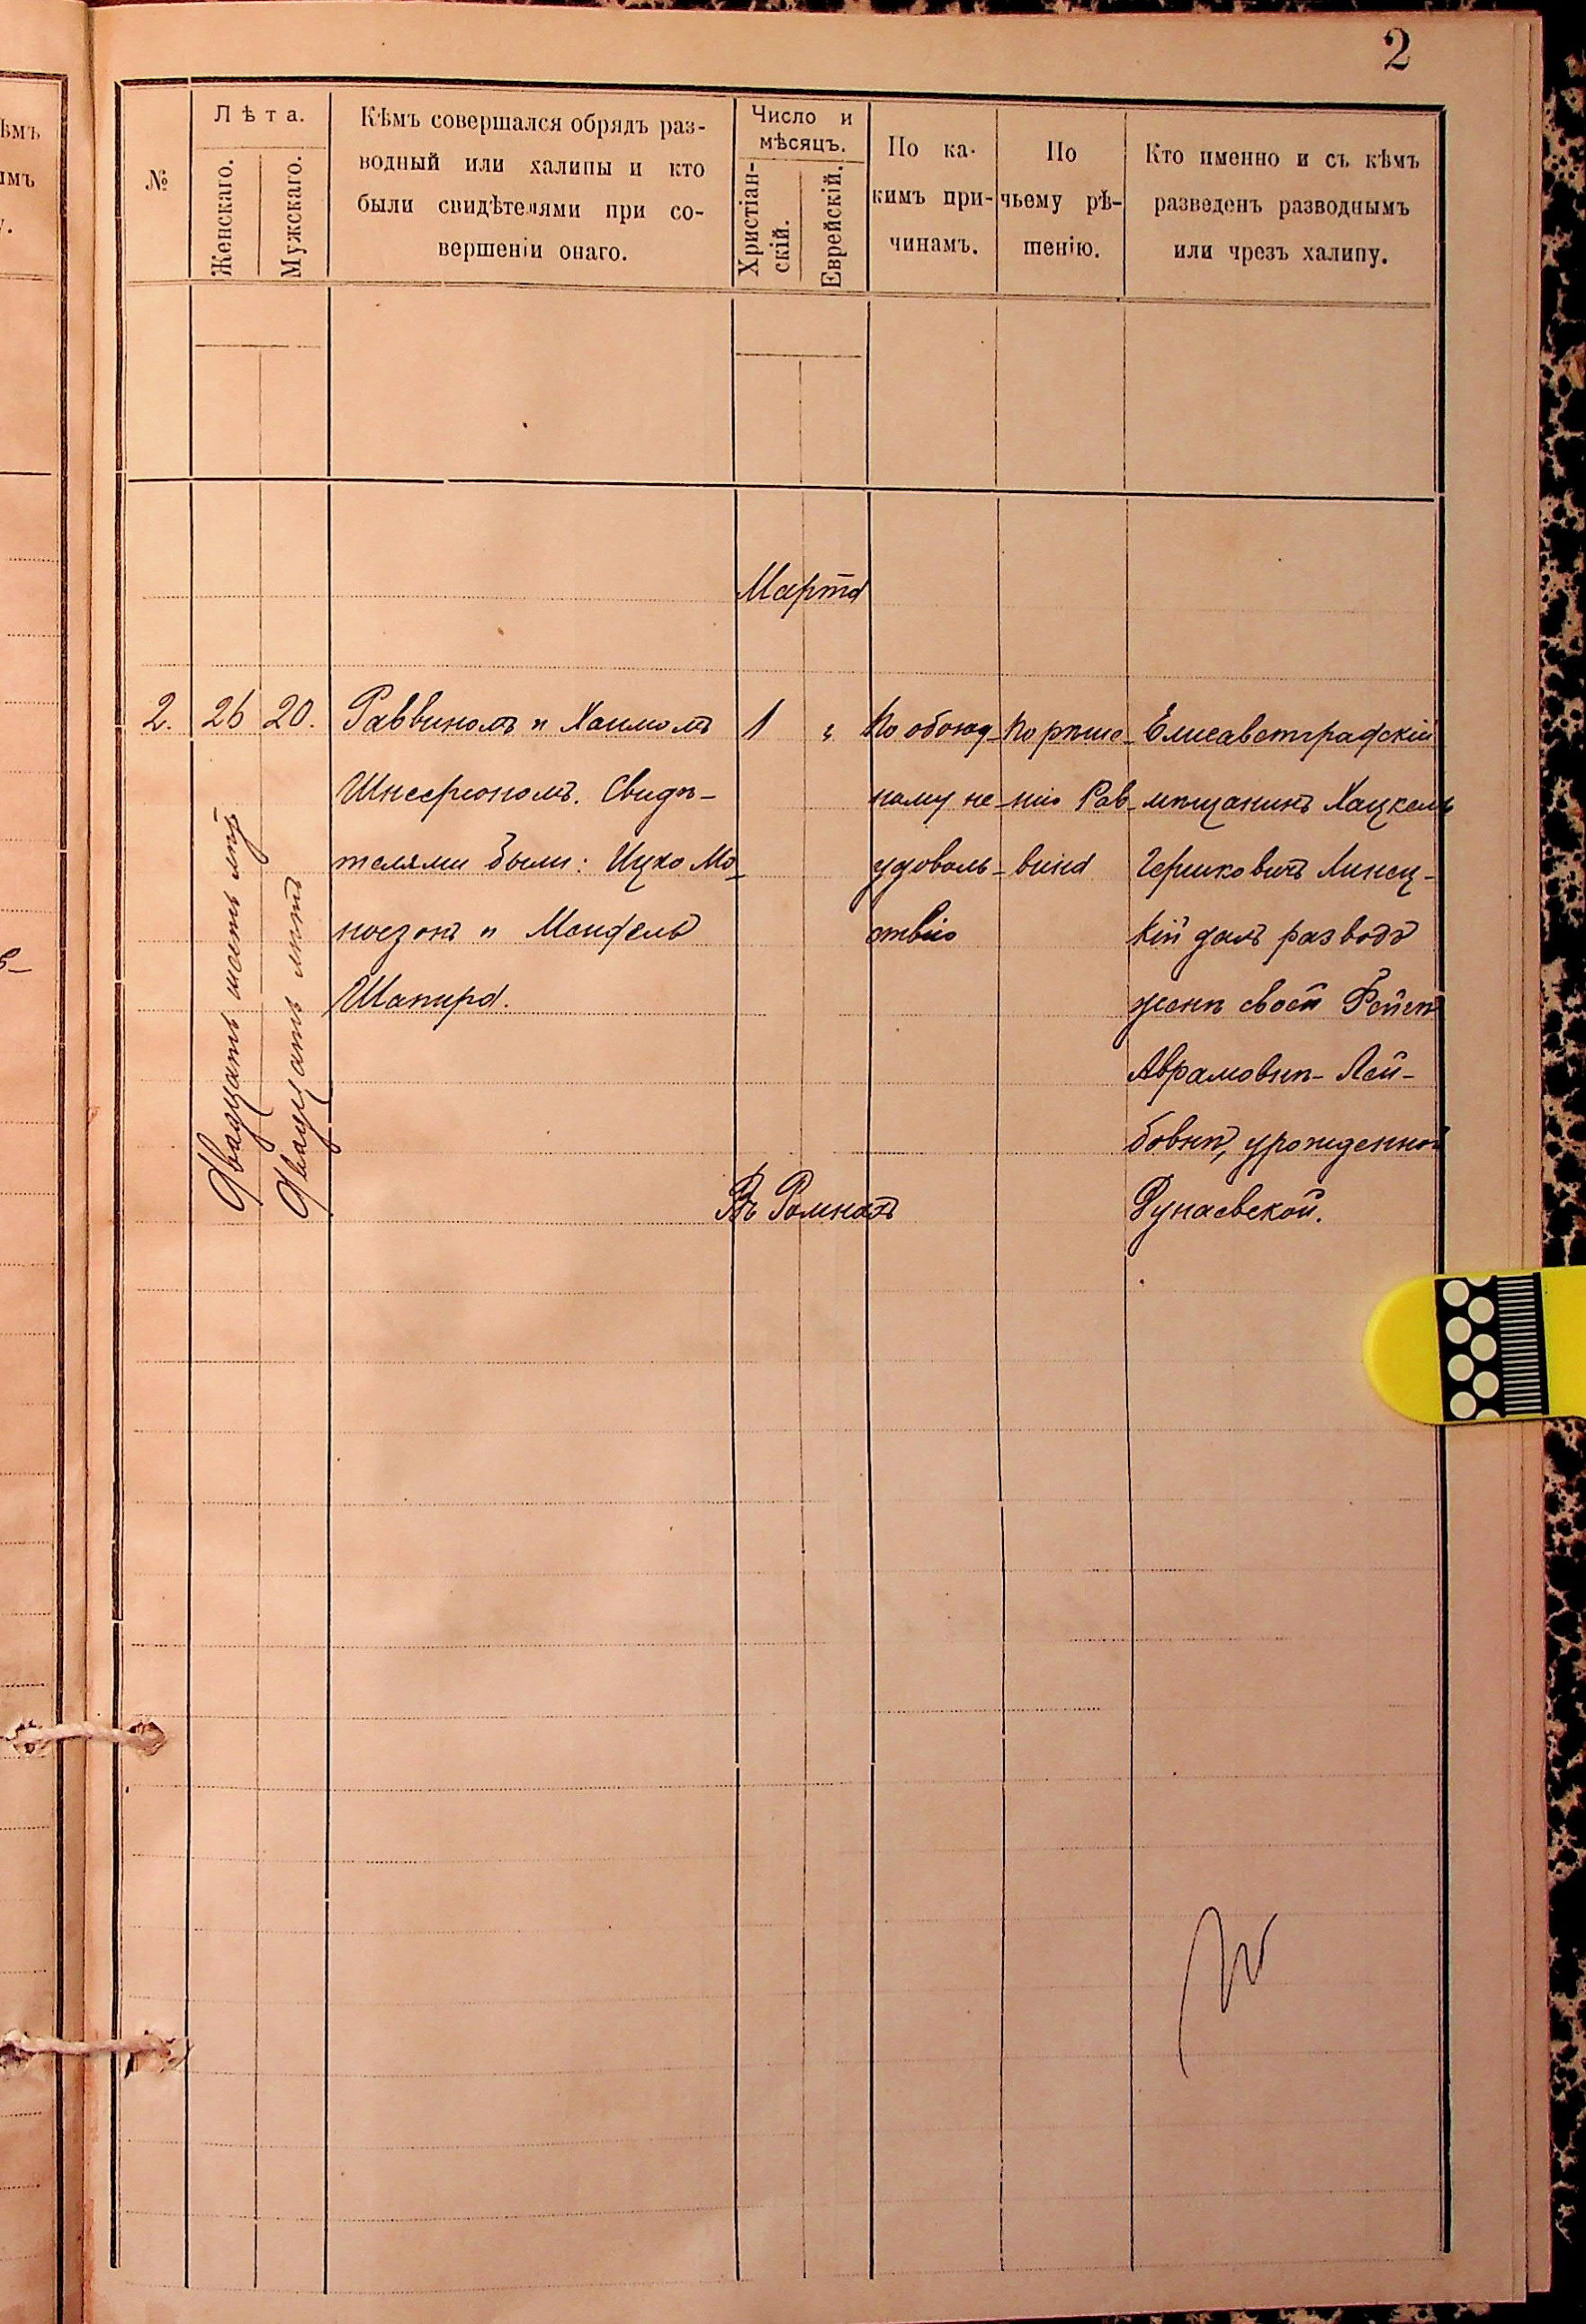 2
ѣмъ
имъ
у.
№
Лѣта.
Женскаго.
Мужскаго.
Кѣмъ совершался обрядъ раз-
водный или халипы и кто
были свидѣтелями при со-
вершеніи онаго.
Число и
мѣсяцъ.
Христіан-
скій.
Еврейскій.
По ка-
кимъ при-
чинамъ.
По
чьему рѣ-
шенію.
Кто именно и съ кѣмъ
разведенъ разводнымъ
или чрезъ халипу.
Марта
2.
26
20.
Двадцать шесть лѣтъ
Двадцать лѣтъ
Раввиномъ и Хаимомъ
Шнеерсономъ. Свидѣ-
телями были: Ицко Мо-
ноезонъ и Мендель
Шапира.
1
"
Въ Ромнахъ
По обоюд-
ному не-
удоволь-
ствію
По рѣше-
нію Рав-
вина
Елисаветградскій
мѣщанинъ Хацкель
Гершковичъ Линец-
кій далъ разводъ
женѣ своей Фейгѣ
Аврамовнѣ-Лей-
бовнѣ, урожденной
Дунаевской.